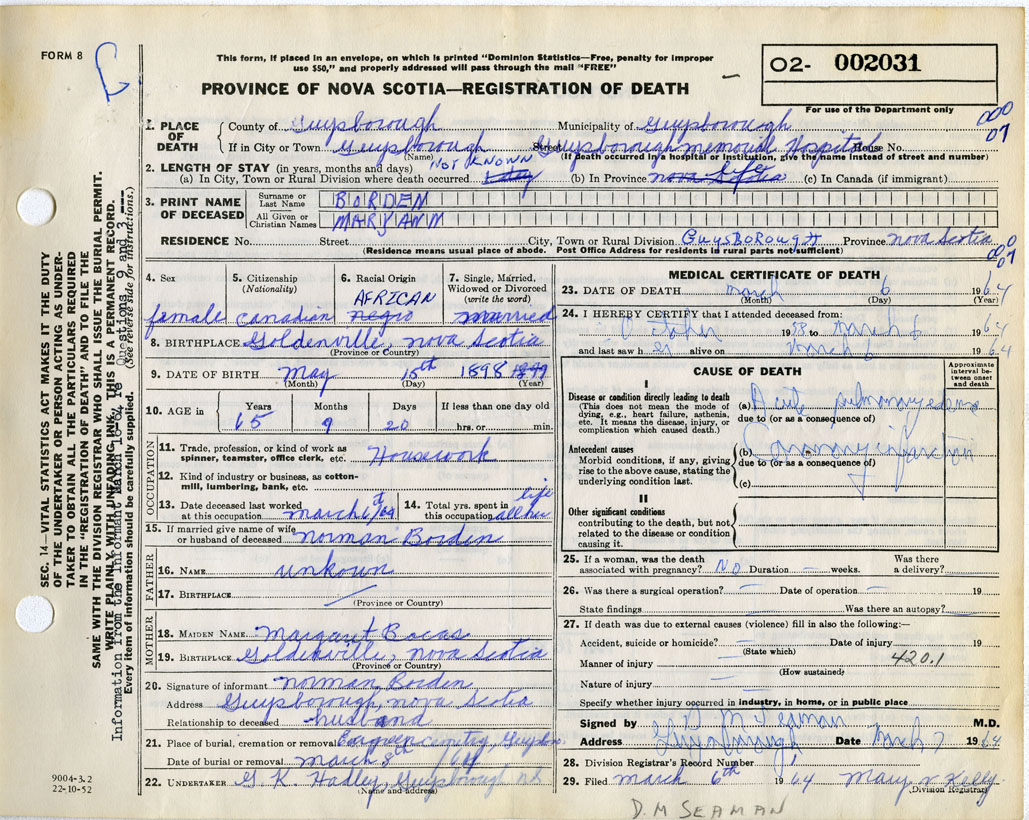 FORM 8
This form, if placed in an envelope, on which is printed "Dominion Statistics—Free, penalty for improper
use $50," and properly addressed will pass through the mail "FREE"
PROVINCE OF NOVA SCOTIA—REGISTRATION OF DEATH
O2- 002031
For use of the Department only
000
07
1. PLACE OF DEATH
County of Guysborough Municipality of Guysborough
If in City or Town Guysborough Street Guysborough Memorial Hospital House No.
(Name) (If death occurred in a hospital or institution, give the name instead of street and number)
2. LENGTH OF STAY (in years, months and days) NOT KNOWN
(a) In City, Town or Rural Division where death occurred (b) In Province Nova Scotia life (c) In Canada (if immigrant)
3. PRINT NAME OF DECEASED
Surname or Last Name BORDEN
All Given or Christian Names MARY ANN
RESIDENCE No. Street City, Town or Rural Division GUYSBOROUGH Province Nova Scotia
(Residence means usual place of abode. Post Office Address for residents in rural parts not sufficient)
000
07
4. Sex female
5. Citizenship (Nationality) Canadian
6. Racial Origin AFRICAN negro
7. Single, Married, Widowed or Divorced (write the word) married
8. BIRTHPLACE Goldenville, Nova Scotia
(Province or Country)
9. DATE OF BIRTH May 15th 1898 1899
(Month) (Day) (Year)
10. AGE in Years 65 Months 9 Days 20 If less than one day old hrs. or min.
OCCUPATION
11. Trade, profession, or kind of work as spinner, teamster, office clerk, etc. Housework
12. Kind of industry or business, as cotton-mill, lumbering, bank, etc.
13. Date deceased last worked at this occupation March 6th/64
14. Total yrs. spent in this occupation all her life
15. If married give name of wife or husband of deceased Norman Borden
FATHER
16. NAME unkown
17. BIRTHPLACE
(Province or Country)
MOTHER
18. MAIDEN NAME Margaret Bacas
19. BIRTHPLACE Goldenville, Nova Scotia
(Province or Country)
20. Signature of informant Norman Borden
Address Guysborough, Nova Scotia
Relationship to deceased husband
21. Place of burial, cremation or removal Evergreen cemetery, Guysboro
Date of burial or removal March 8th /64
22. UNDERTAKER G. K. Hadley, Guysborough N.S.
(Name and address)
MEDICAL CERTIFICATE OF DEATH
23. DATE OF DEATH March 6 1964
(Month) (Day) (Year)
24. I HEREBY CERTIFY that I attended deceased from:
October 1958 to March 6 1964
and last saw her alive on March 6 1964
CAUSE OF DEATH
Approximate interval between onset and death
I
Disease or condition directly leading to death
(This does not mean the mode of dying, e.g., heart failure, asthenia, etc. It means the disease, injury, or complication which caused death.)
(a) Acute pulmonary edema
due to (or as a consequence of)
Antecedent causes
Morbid conditions, if any, giving rise to the above cause, stating the underlying condition last.
(b) Coronary infarction
due to (or as a consequence of)
(c)
II
Other significant conditions
contributing to the death, but not related to the disease or condition causing it.
25. If a woman, was the death associated with pregnancy? NO Duration — weeks. Was there a delivery?
26. Was there a surgical operation? — Date of operation — 19
State findings — Was there an autopsy? —
27. If death was due to external causes (violence) fill in also the following:—
Accident, suicide or homicide? — Date of injury 19
(State which)
Manner of injury — 420.1
(How sustained)
Nature of injury —
Specify whether injury occurred in industry, in home, or in public place
Signed by D M Seaman M.D.
Address Guysborough Date March 7 1964
28. Division Registrar's Record Number 1
29. Filed March 6th 1964 Mary V Kelly
(Division Registrar)
D.M SEAMAN
SEC. 14—VITAL STATISTICS ACT MAKES IT THE DUTY
OF THE UNDERTAKER OR PERSON ACTING AS UNDER-
TAKER TO OBTAIN ALL THE PARTICULARS REQUIRED
IN THE "REGISTRATION OF DEATH" AND TO FILE THE
SAME WITH THE DIVISION REGISTRAR WHO SHALL ISSUE THE BURIAL PERMIT.
WRITE PLAINLY WITH UNFADING INK. THIS IS A PERMANENT RECORD.
Information from the Informant March 18-64 re Questions 9 and 3
Every item of information should be carefully supplied. (See reverse side for instructions.)
9004-3.2
22-10-52